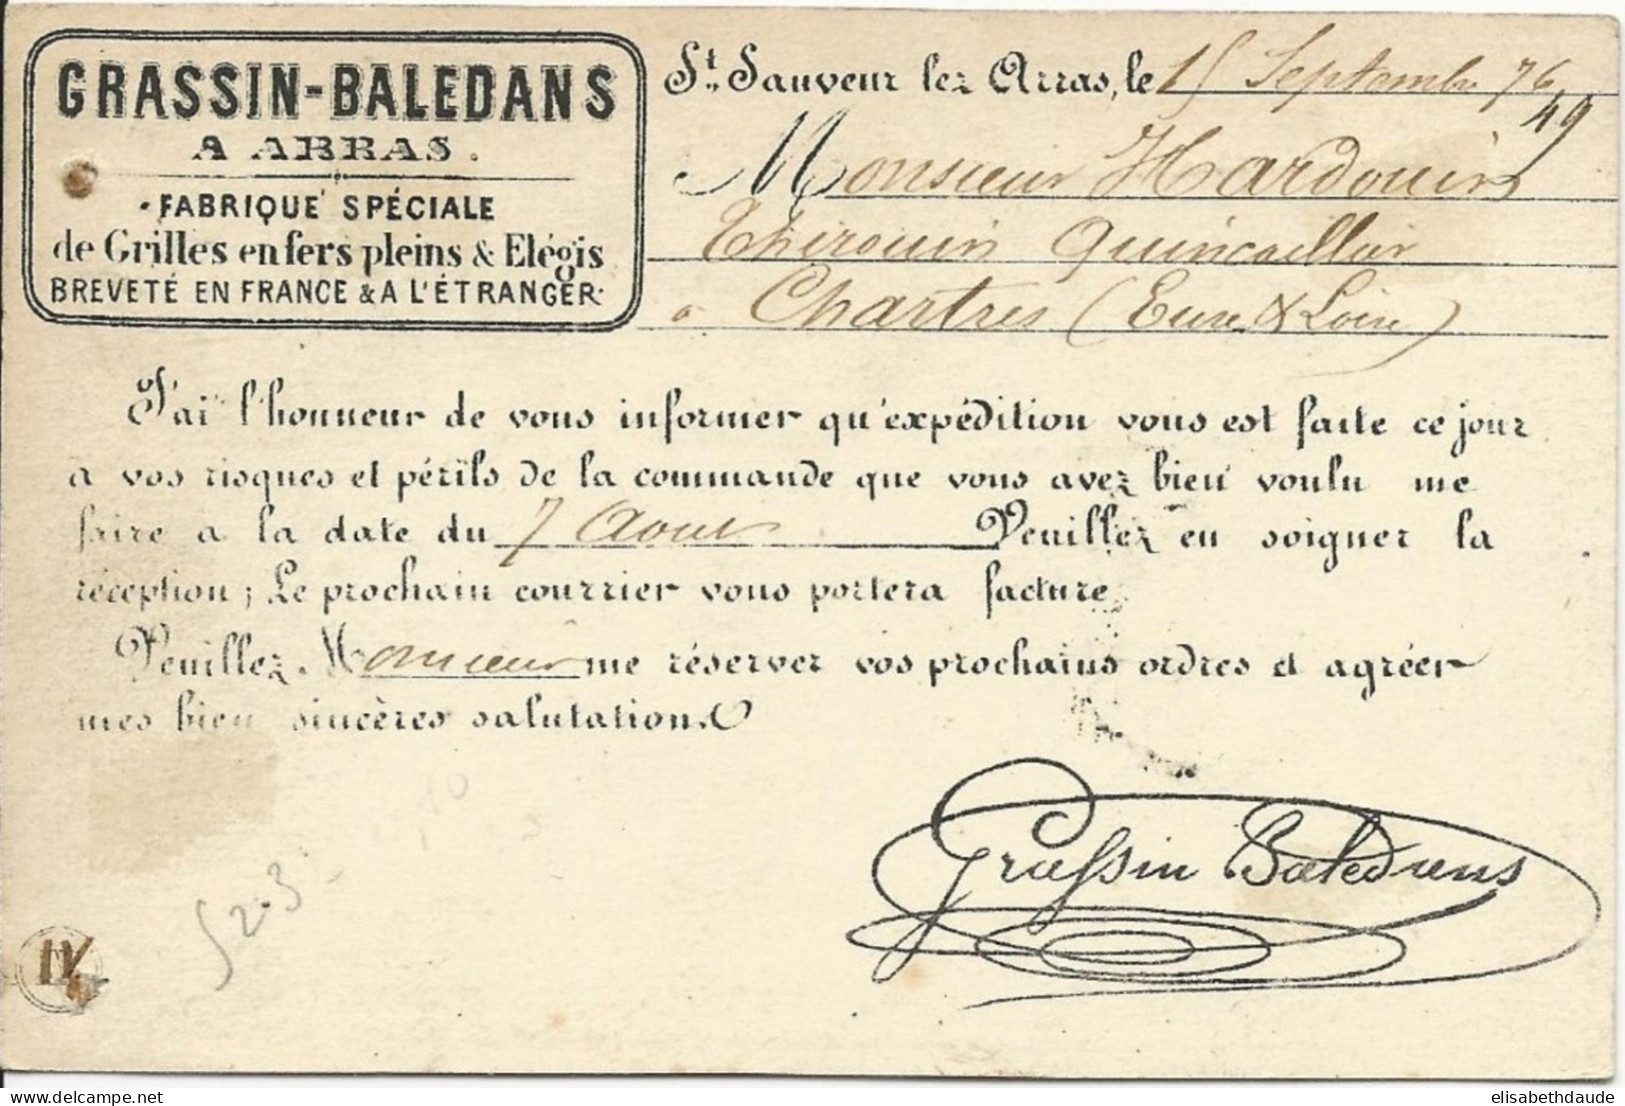 GRASSIN-BALEDANS
A ARRAS.
FABRIQUE SPÉCIALE
de Grilles en fers pleins & Elégis
BREVETÉ EN FRANCE & A L'ÉTRANGER.
St. Sauveur lez Arras, le 15 Septembre 76
49
Monsieur Hardouin
Thirouin Quincaillier
à Chartres (Eure & Loire)
J'ai l'honneur de vous informer qu'expédition vous est faite ce jour
a vos risques et périls de la commande que vous avez bien voulu me
faire a la date du 7 Aout Veuillez en soigner la
réception; Le prochain courrier vous portera facture.
Veuillez Monsieur me réserver vos prochains ordres et agréer
mes bien sincères salutations.
Grassin Baledans
523
elisabethdaude